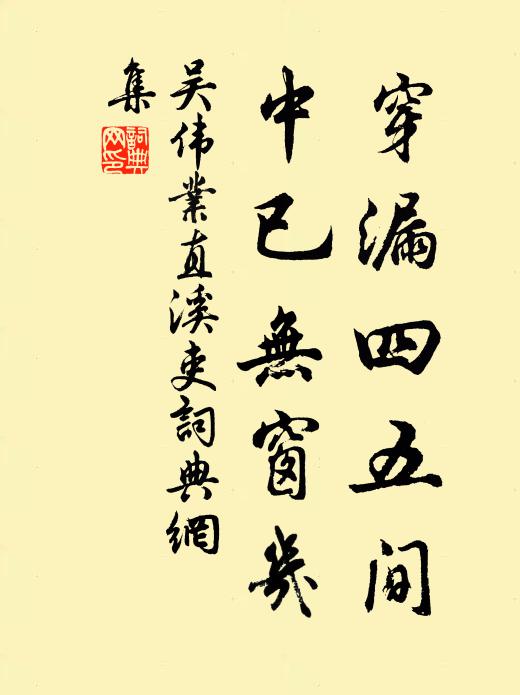 穿漏四五间
中已無窗几
吴伟業直溪吏詞典網
集
詞典網印